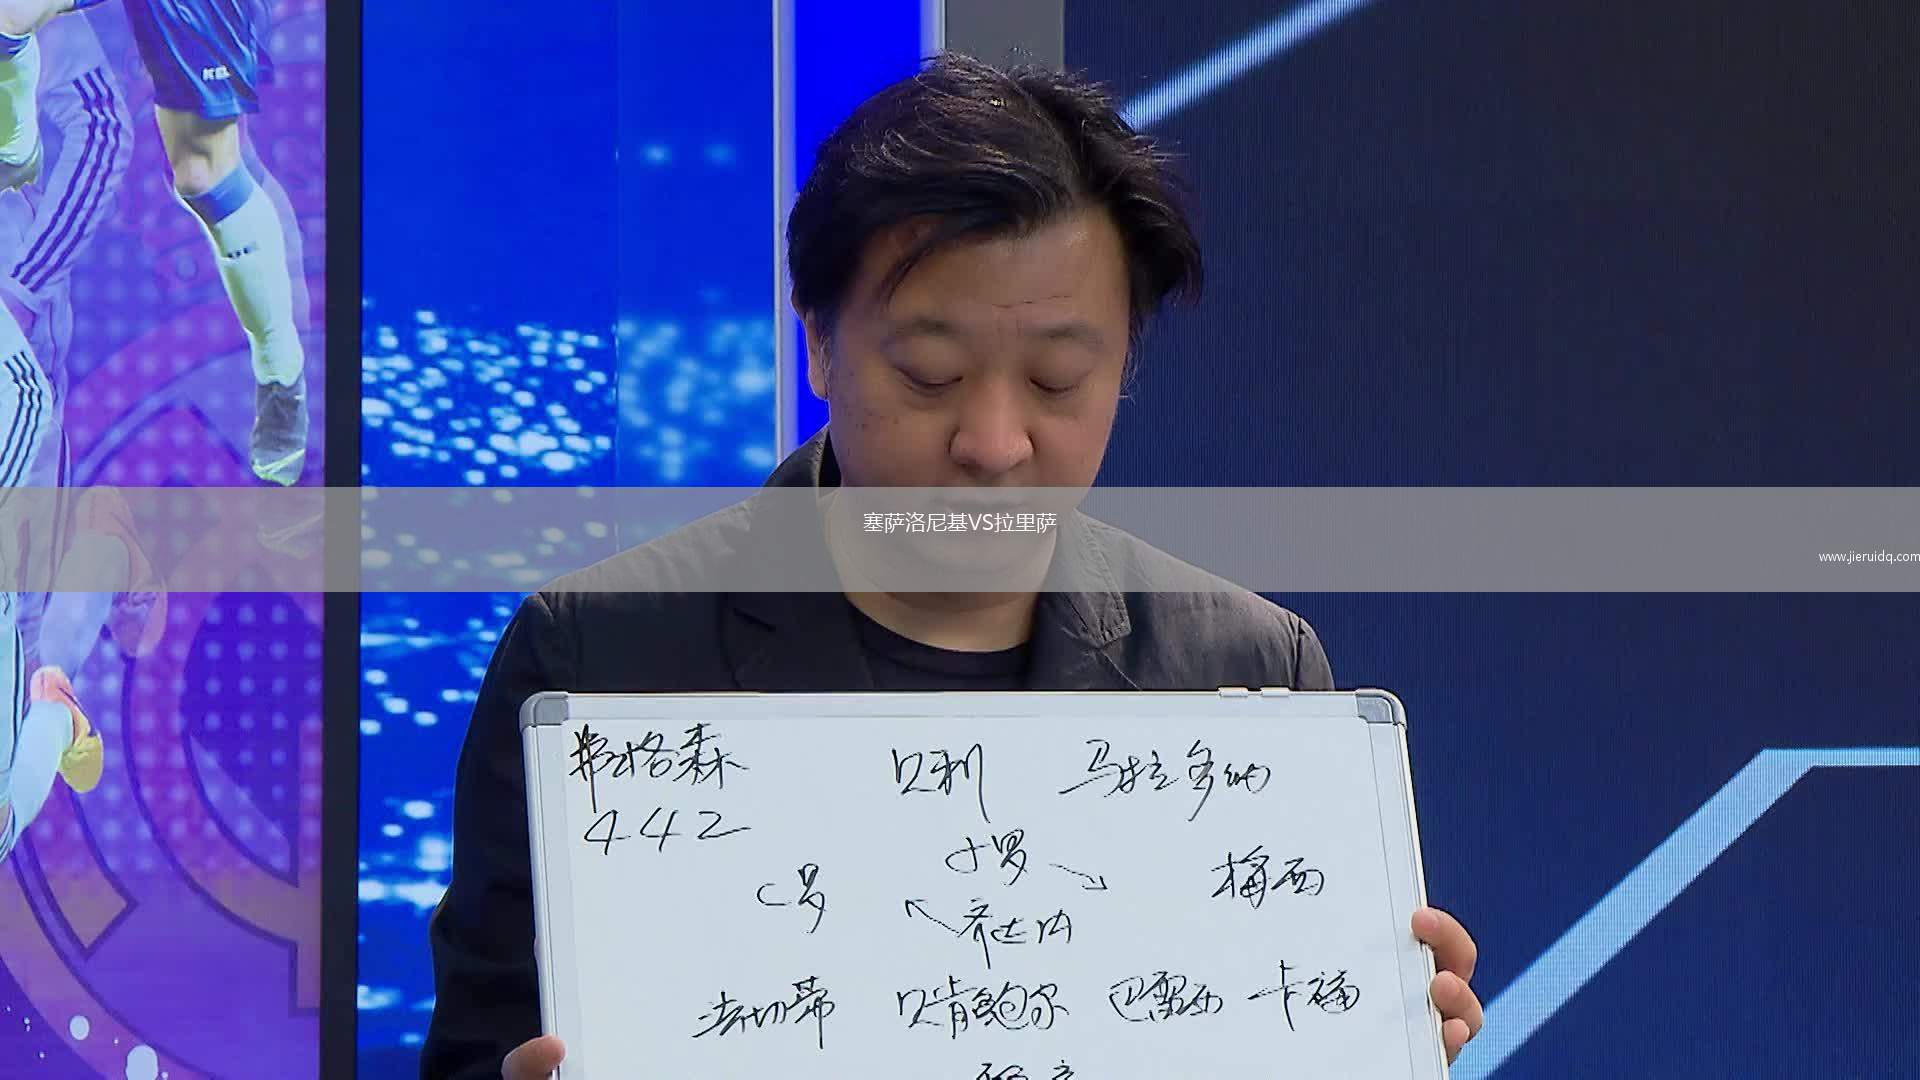 KEL
塞萨洛尼基VS拉里萨
www.jieruidq.com
弗格森 贝利 马拉多纳
442
小罗
C罗 梅西
齐达内
法切蒂 贝肯鲍尔 巴雷西 卡福